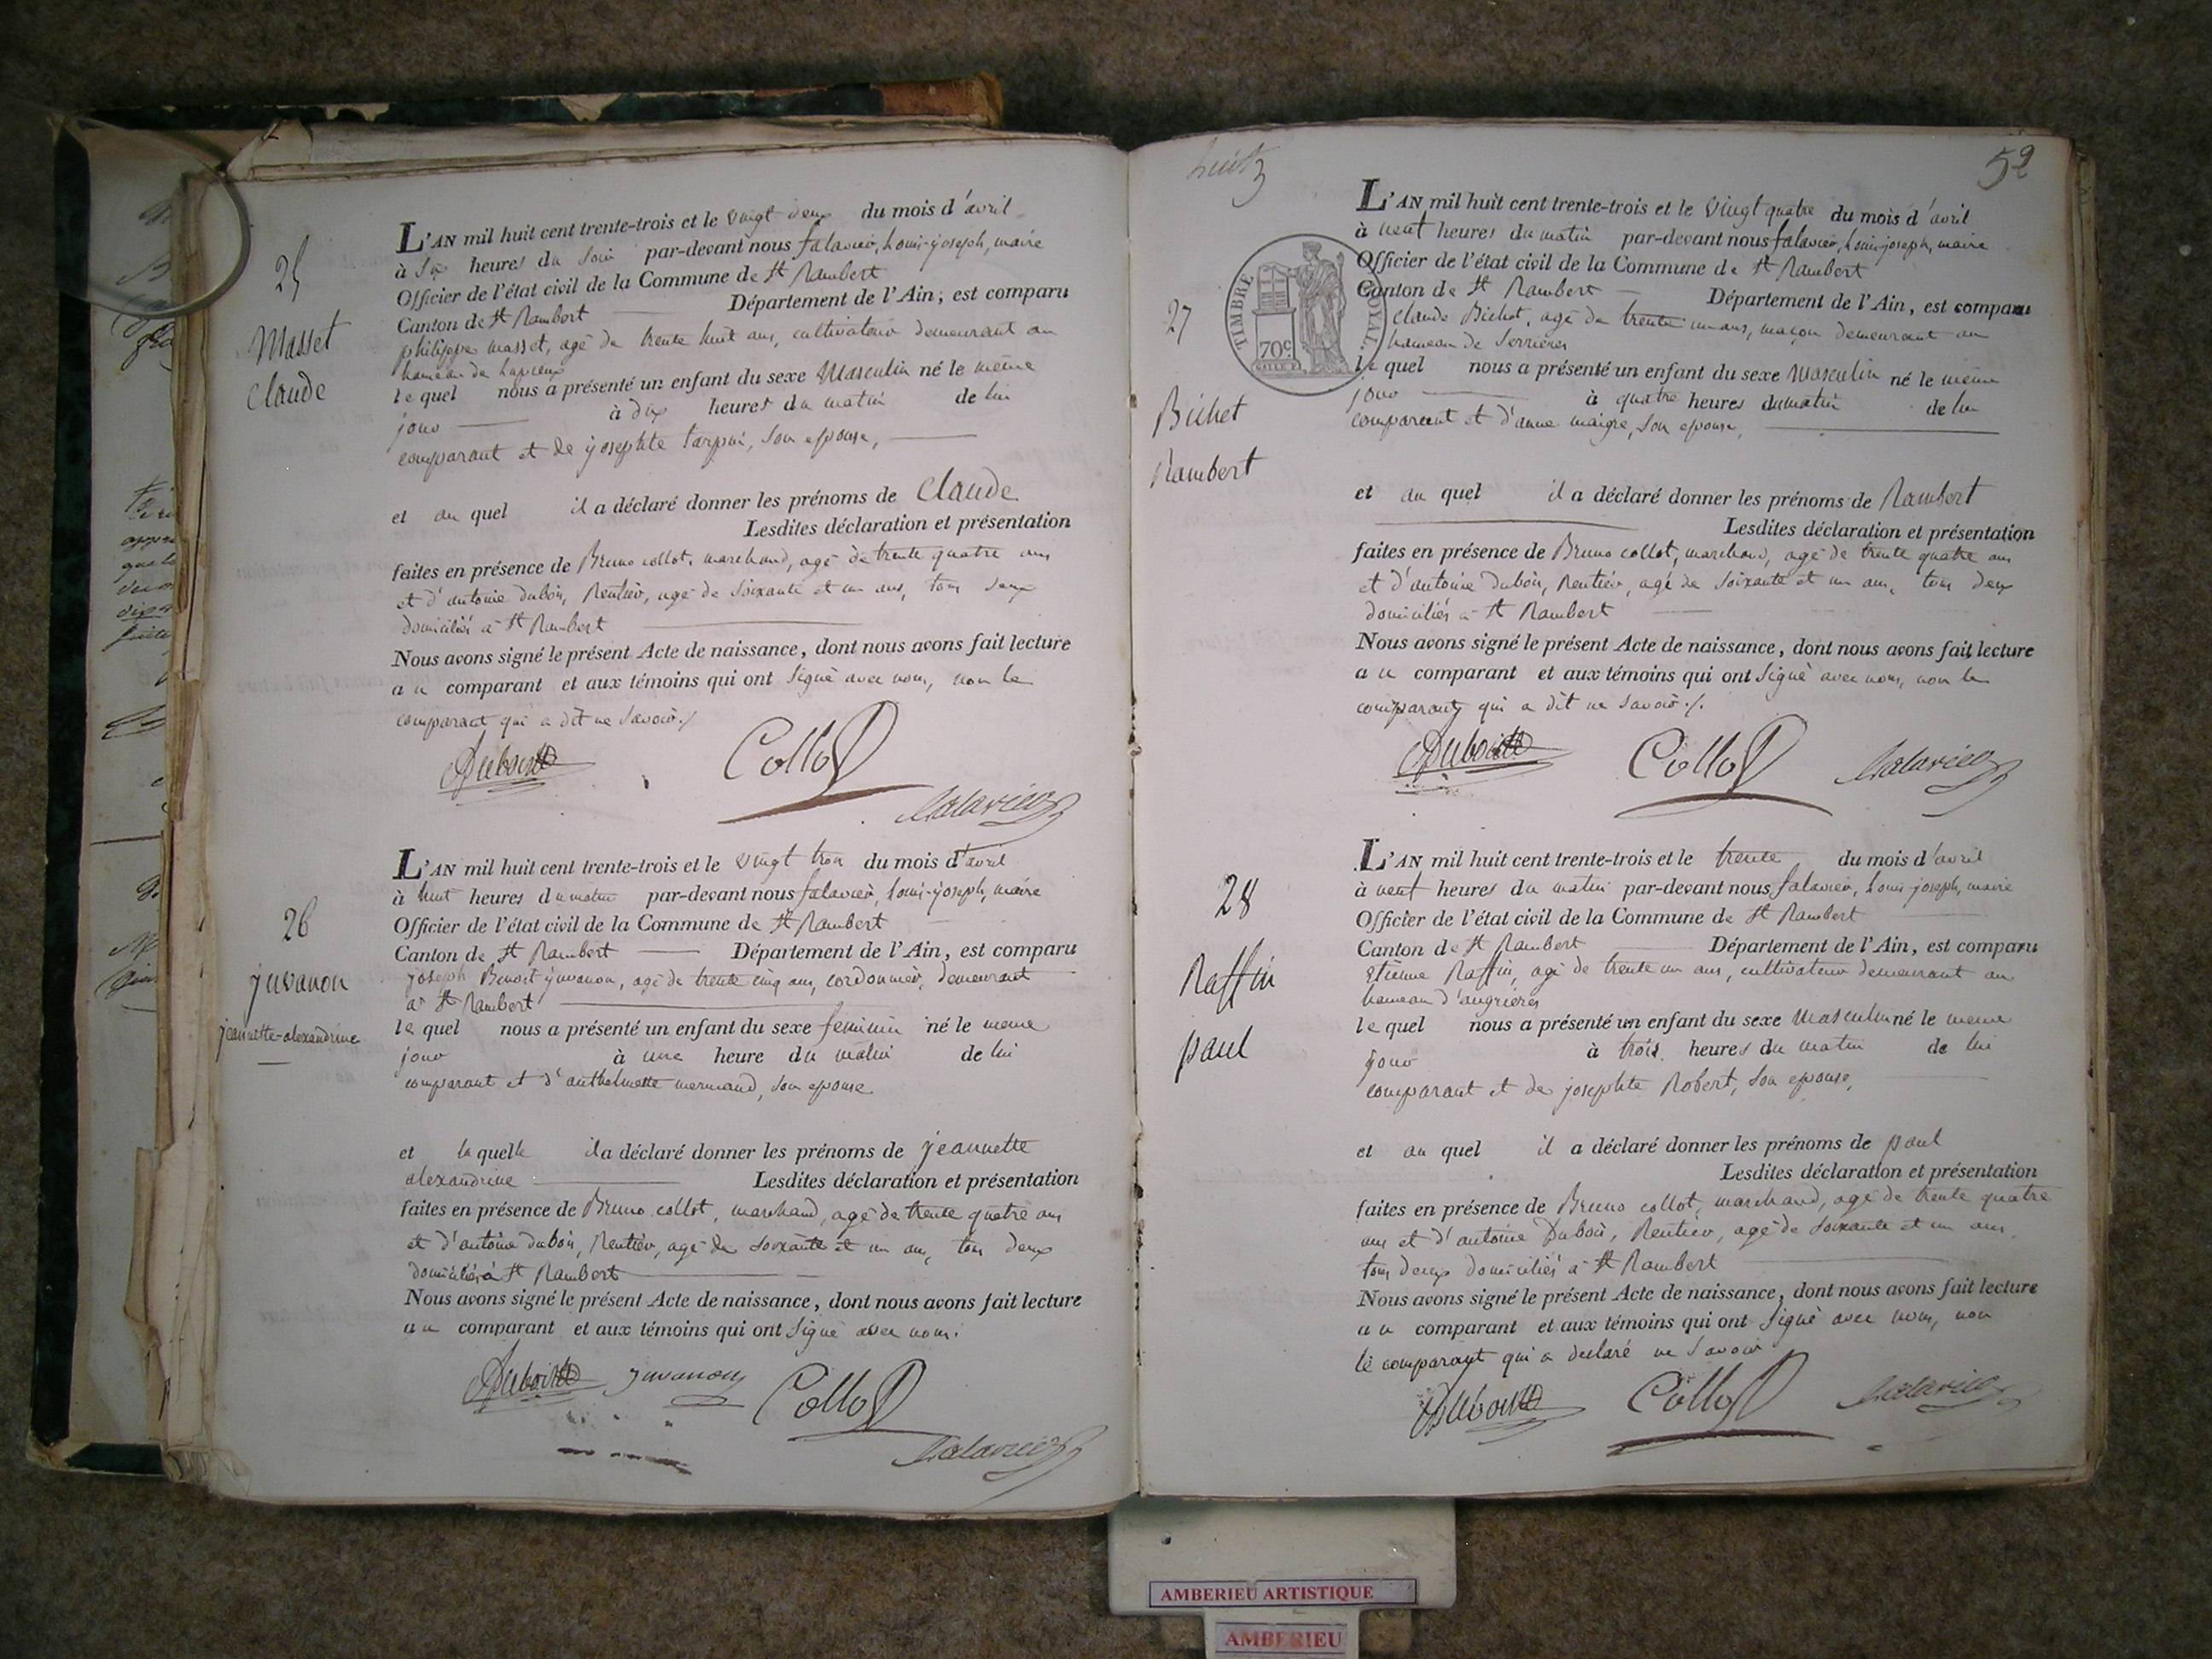 25
Masset
Claude
L'AN mil huit cent trente-trois et le vingt deux du mois d'avril
à six heures du soir par-devant nous falavier, Louis-joseph, maire
Officier de l'état civil de la Commune de St Rambert
Canton de St Rambert Département de l'Ain, est comparu
philippe masset, agé de trente huit ans, cultivateur demeurant au
hameau de
le quel nous a présenté un enfant du sexe Masculin né le même
jour à dix heures du matin de lui
comparant et de josephte tarpin, son epouse,
et au quel il a déclaré donner les prénoms de Claude
Lesdites déclaration et présentation
faites en présence de Bruno collot, marchand, agé de trente quatre ans
et d'antoine dubois, Rentier, agé de soixante et un ans, tous deux
domiciliés à St Rambert
Nous avons signé le présent Acte de naissance, dont nous avons fait lecture
au comparant et aux témoins qui ont signé avec nous, non le
comparant qui a dit ne savoir ./
Dubois Collot
falavier
26
juvanon
jeannette-alexandrine
L'AN mil huit cent trente-trois et le vingt trois du mois d'avril
à huit heures du matin par-devant nous falavier, Louis-joseph, maire
Officier de l'état civil de la Commune de St Rambert
Canton de St Rambert Département de l'Ain, est comparu
joseph Benoit juvanon, agé de trente cinq ans, cordonnier, demeurant
à St Rambert
le quel nous a présenté un enfant du sexe feminin né le meme
jour à une heure du matin de lui
comparant et d'anthelmette mermand, son epouse
et la quelle il a déclaré donner les prénoms de jeannette
alexandrine Lesdites déclaration et présentation
faites en présence de Bruno collot, marchand, agé de trente quatre ans
et d'antoine dubois, Rentier, agé de soixante et un ans, tous deux
domiciliés à St Rambert
Nous avons signé le présent Acte de naissance, dont nous avons fait lecture
au comparant et aux témoins qui ont signé avec nous.
Dubois juvanon Collot
falavier
huit
52
27
Bichet
Rambert
TIMBRE ROYAL
70c
L'AN mil huit cent trente-trois et le vingt quatre du mois d'avril
à neuf heures du matin par-devant nous falavier, Louis-joseph, maire
Officier de l'état civil de la Commune de St Rambert
Canton de St Rambert Département de l'Ain, est comparu
Claude Bichet, agé de trente un ans, maçon demeurant au
hameau de Serrieres
le quel nous a présenté un enfant du sexe Masculin né le même
jour à quatre heures du matin de lui
comparant et d'anne maigre, son epouse,
et au quel il a déclaré donner les prénoms de Rambert
Lesdites déclaration et présentation
faites en présence de Bruno collot, marchand, agé de trente quatre ans
et d'antoine dubois, Rentier, agé de soixante et un ans, tous deux
domiciliés à St Rambert
Nous avons signé le présent Acte de naissance, dont nous avons fait lecture
au comparant et aux témoins qui ont signé avec nous, non le
comparant qui a dit ne savoir ./.
Dubois Collot falavier
28
Raffin
paul
L'AN mil huit cent trente-trois et le trente du mois d'avril
à neuf heures du matin par-devant nous falavier, Louis-joseph, maire
Officier de l'état civil de la Commune de St Rambert
Canton de St Rambert Département de l'Ain, est comparu
Etienne Raffin, agé de trente un ans, cultivateur demeurant au
hameau d'angrieres
le quel nous a présenté un enfant du sexe Masculin né le meme
jour à trois heures du matin de lui
comparant et de josephte Robert, son epouse,
et au quel il a déclaré donner les prénoms de paul
Lesdites déclaration et présentation
faites en présence de Bruno collot, marchand, agé de trente quatre
ans et d'antoine Dubois, Rentier, agé de soixante et un ans,
tous deux domiciliés à St Rambert
Nous avons signé le présent Acte de naissance, dont nous avons fait lecture
au comparant et aux témoins qui ont signé avec nous, non
le comparant qui a declaré ne savoir
Dubois Collot falavier
AMBERIEU ARTISTIQUE
AMBERIEU